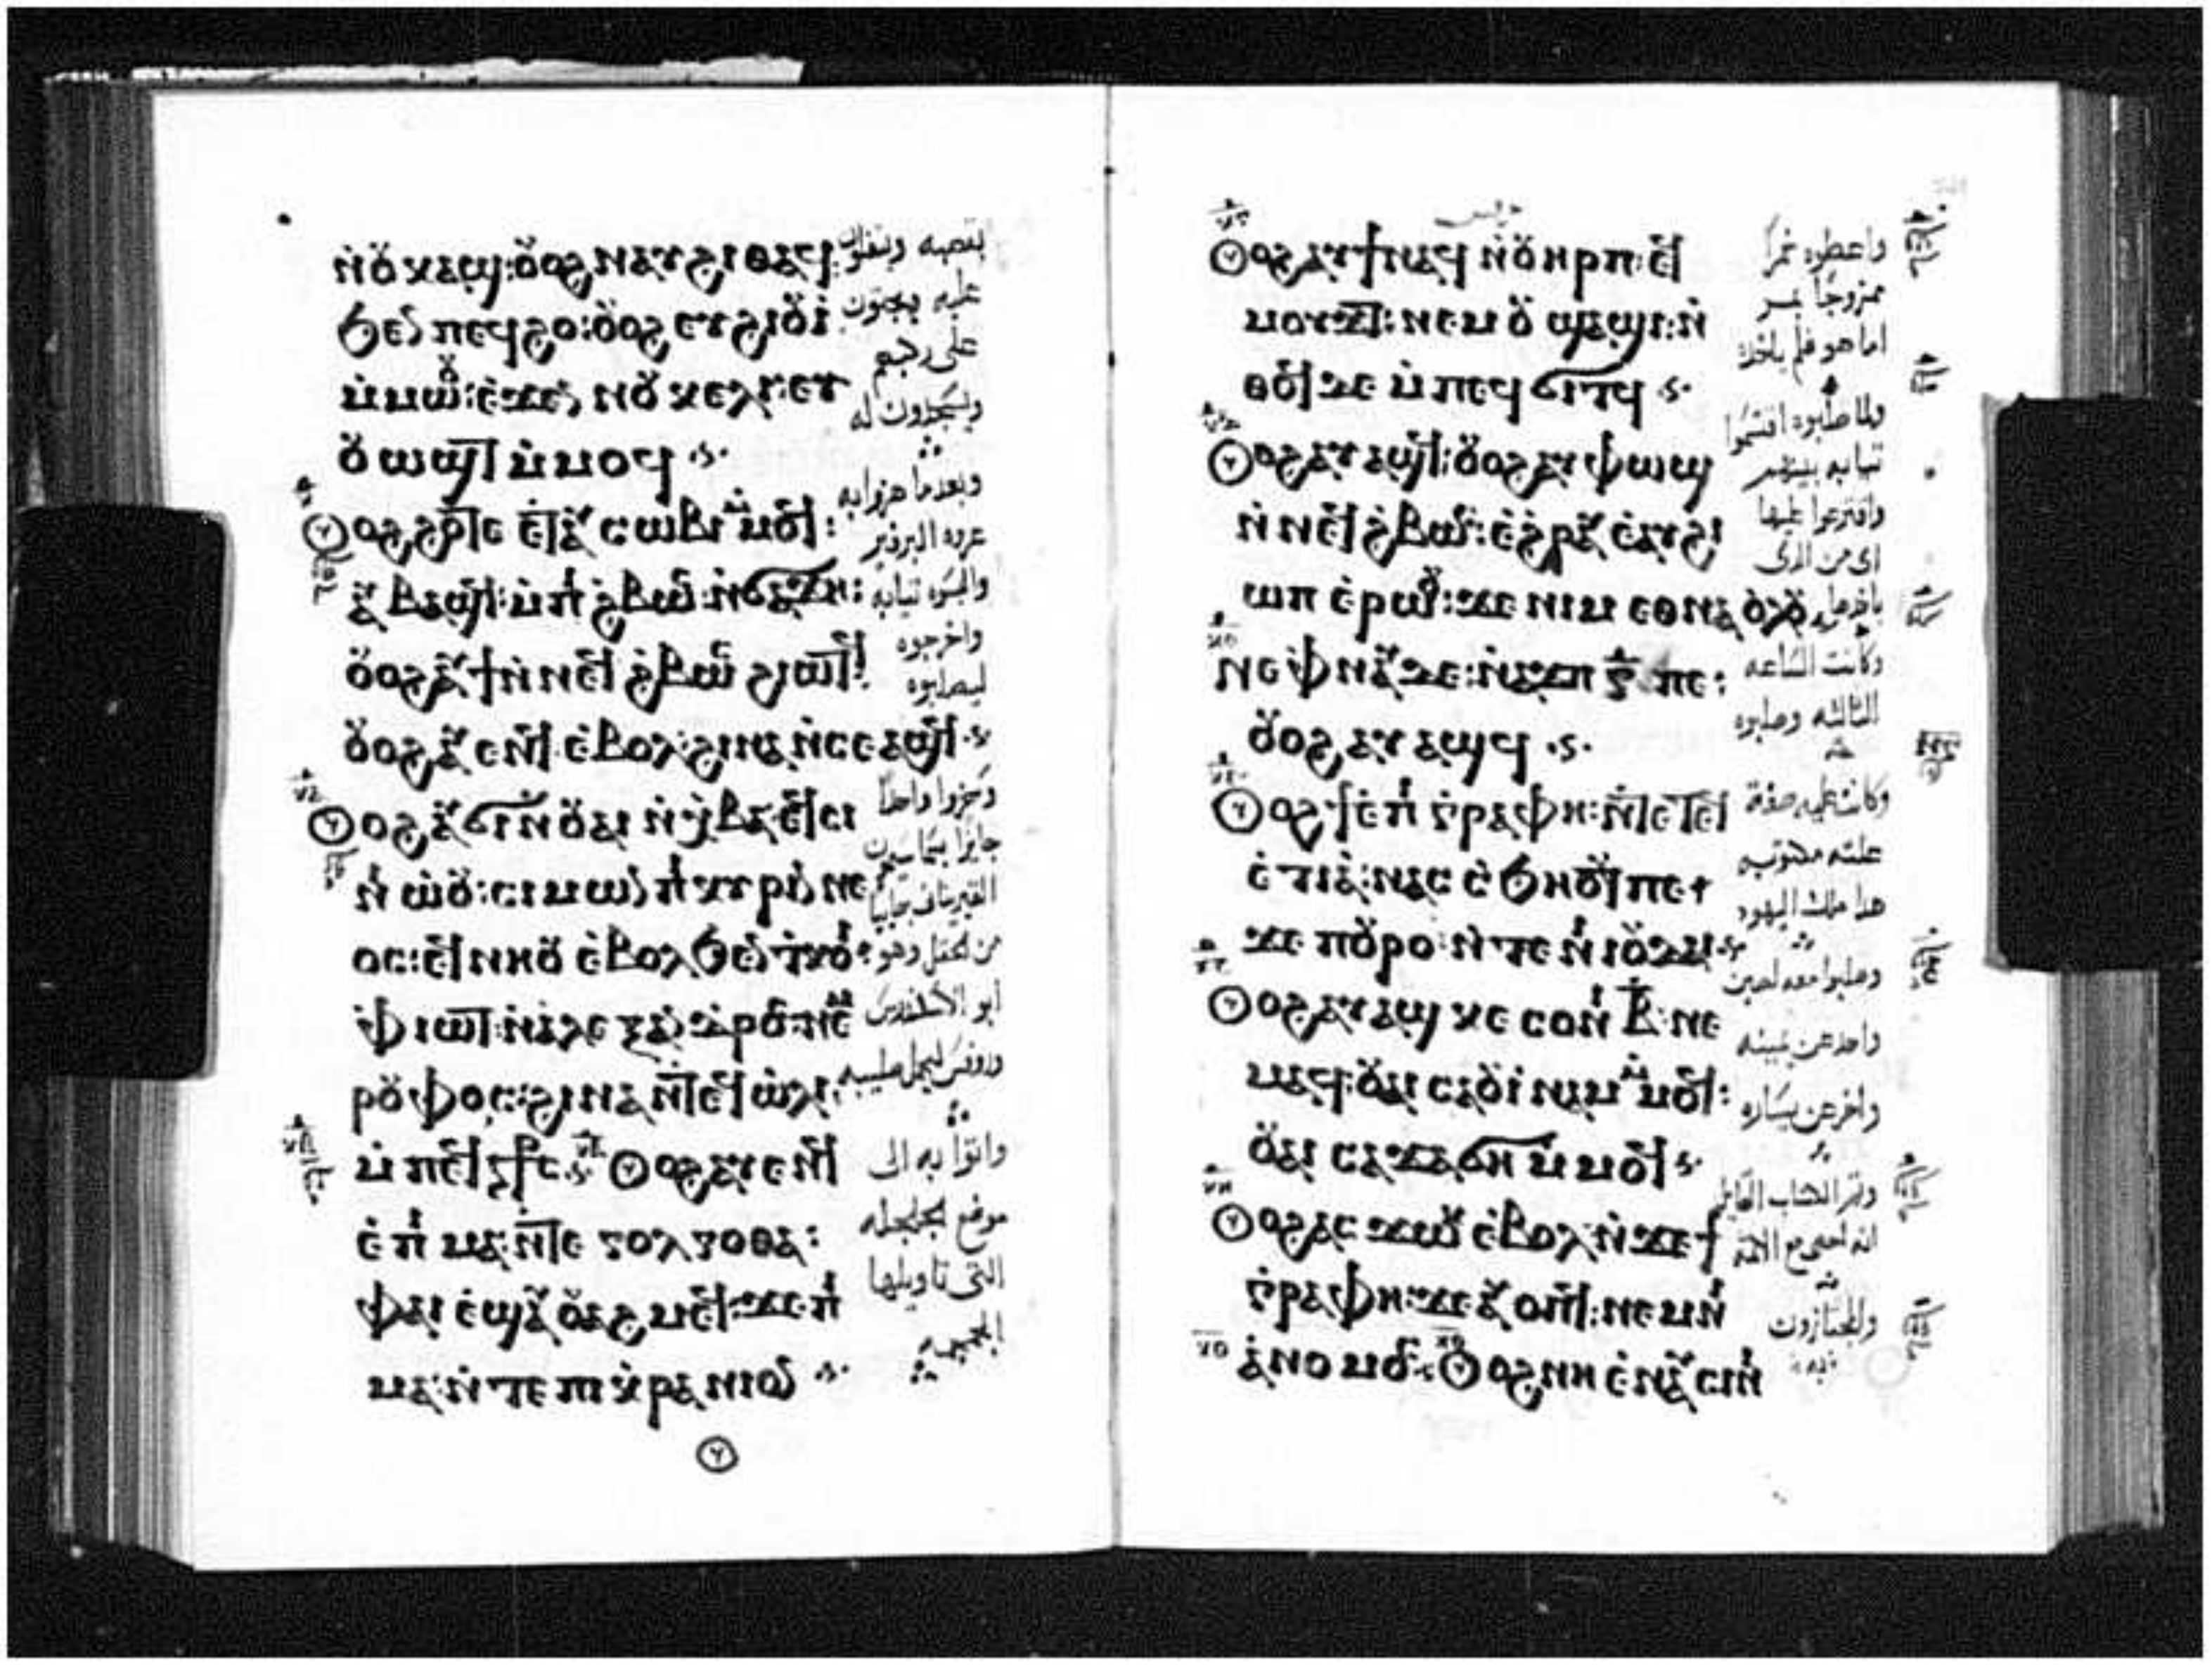 ⲛ̀ⲟⲩⲕⲁϣ: ⲟⲩⲟϩ ⲛⲁⲩϩⲓⲑⲁϥ:
ϧⲉⲛ ⲡⲉϥϩⲟ: ⲟⲩⲟϩ ⲉⲩϩⲓⲟⲩⲓ̀
ⲙ̀ⲙⲱⲟⲩ: ⲉ̀ϫⲉⲛ ⲛⲟⲩⲕⲉⲗⲓ: ⲉⲩ
ⲟⲩⲱϣⲧ ⲙ̀ⲙⲟϥ
ⲟⲩⲟϩ ϩⲟⲧⲉ ⲉⲧⲁⲩ ⲥⲱⲃⲓ ⲙ̀ⲙⲟϥ:
ⲁⲩⲃⲁϣϥ: ⲙ̀ⲡⲓ ϩ̀ⲃⲱⲥ: ⲛ̀ϭⲁϫⲓ:
ⲟⲩⲟϩ ⲁⲩϯ ⲛ̀ⲛⲉϥ ϩ̀ⲃⲱⲥ ϩⲓⲱⲧϥ:
ⲟⲩⲟϩ ⲁⲩⲉⲛϥ ⲉ̀ⲃⲟⲗ: ϩⲓⲛⲁ ⲛ̀ⲥⲉⲁϣϥ
ⲟⲩⲟϩ ⲁⲩϭⲓ ⲛ̀ⲟⲩⲁⲓ ⲛ̀ϫ̀ⲃⲁ: ⲉϥⲥⲓ
ⲛⲓ ⲱ̀ⲟⲩ: ⲥⲓⲙⲱⲛ ⲡⲓ ⲕⲩⲣⲓⲛⲛⲉ
ⲟⲥ: ⲉϥⲛⲏⲟⲩ ⲉ̀ⲃⲟⲗ ϧⲉⲛ ⲧ̀ⲕⲟⲓ:
ⲫ̀ⲓⲱⲧ: ⲛ̀ⲁ̀ⲗⲉⲝⲁⲛⲇⲣⲟⲥ ⲛⲉⲙ
ⲣⲟⲩⲫⲟⲥ: ϩⲓⲛⲁ ⲛ̀ⲧⲉϥⲱ̀ⲗⲓ:
ⲙ̀ⲡⲉϥⲥ̀ⲧⲁⲩⲣⲟⲥ ⲟⲩⲟϩ ⲁⲩⲉⲛϥ
ⲉ̀ⲡⲓ ⲙⲁ: ⲛ̀ⲧⲉ ⲅⲟⲗⲅⲟⲑⲁ:
ⲫⲁⲓ ⲉ̀ϣⲁⲩⲟⲩⲁϩⲙⲉϥ: ϫⲉ ⲡⲓ
ⲙⲁ: ⲛ̀ⲧⲉ ⲡⲓⲕ̀ⲣⲁⲛⲓⲟⲛ
بقصبه ويتفلون
عليه يجثون
على ركبهم
ويسجدون له
وبعدما هزوا به
عروه البرفير
والبسوه ثيابه
واخرجوه
ليصلبوه
وسخروا واحدا
القيرينائى جائيا
من الحقل وهو
ابو الاسكندرس
وروفس ليحمل صليبه
واتوا به الى
موضع الجلجله
التى تاويلها
الجمجمه
ⲟⲩⲟϩ ⲁⲩϯ ⲛⲁϥ ⲛ̀ⲟⲩⲏⲣⲡ: ⲉϥ
ⲙⲟⲩϫⲧ: ⲛⲉⲙ ⲟⲩ ϣⲁϣⲓ: ⲛ̀
ⲑⲟϥ ϫⲉ ⲙ̀ⲡⲉϥ ϭⲓⲧϥ
ⲟⲩⲟϩ ⲁⲩⲁϣϥ: ⲟⲩⲟϩ ⲁⲩⲫⲱϣ
ⲛ̀ⲛⲉϥ ϩ̀ⲃⲱⲥ: ⲉ̀ϩ̀ⲣⲁⲩ ⲉ̀ⲁⲩϩⲓ
ⲱⲡ ⲉ̀ⲣⲱⲟⲩ: ϫⲉ ⲛⲓⲙ ⲉⲑⲛⲁ ⲟ̀ⲗⲟⲩ
ⲛⲉ ⲫ̀ⲛⲁⲩ ϫⲉ: ⲛ̀ⲁϫⲡ ⲅ̅ ⲡⲉ:
ⲟⲩⲟϩ ⲁⲩⲁϣϥ
ⲟⲩⲟϩ ϯⲉ̀ⲡⲓ ⲅ̀ⲣⲁⲫⲏ: ⲛ̀ⲧⲉ ⲧⲉϥ
ⲉ̀ⲧⲓⲁ̀: ⲛⲁⲥ ⲥ̀ϧⲏⲟⲩⲧ ⲡⲉ
ϫⲉ ⲡⲟⲩⲣⲟ: ⲛ̀ⲧⲉ ⲛⲓ ⲓⲟⲩⲇⲁⲓ
ⲟⲩⲟϩ ⲁⲩⲁϣ ⲕⲉ ⲥⲟⲛⲓ ⲃ̅: ⲛⲉ
ⲙⲁϥ: ⲟⲩⲁⲓ ⲥⲁⲟⲩⲓ̀ⲛⲁⲙ ⲙ̀ⲙⲟϥ:
ⲟⲩⲁⲓ ⲥⲁϫⲁϭⲏ ⲙ̀ⲙⲟϥ
ⲟⲩⲟϩ ⲁⲥϫⲱⲕ ⲉ̀ⲃⲟⲗ ⲛ̀ϫⲉ ϯ
ⲅ̀ⲣⲁⲫⲏ: ϫⲉ ⲁⲩⲟⲡϥ: ⲛⲉⲙ ⲛⲓ
ⲁ̀ⲛⲟⲙⲟⲥ: ⲟⲩⲟϩ ⲛⲏ ⲉ̀ⲛⲁⲩⲥⲓⲛⲓ
واعطوه خمرا
ممزوجا بمر
اما هو فلم ياخذه
ولما صلبوه اقتسموا
ثيابه بينهم
واقترعوا عليها
اى من الذى
وكانت الساعه
الثالثه وصلبوه
علته مكتوبه
هذا ملك اليهود
وصلبوا معه لصين
واحد عن يمينه
واخر عن يساره
وتم الكتاب القايل
انه احصى مع الاثمة
والمجتازون